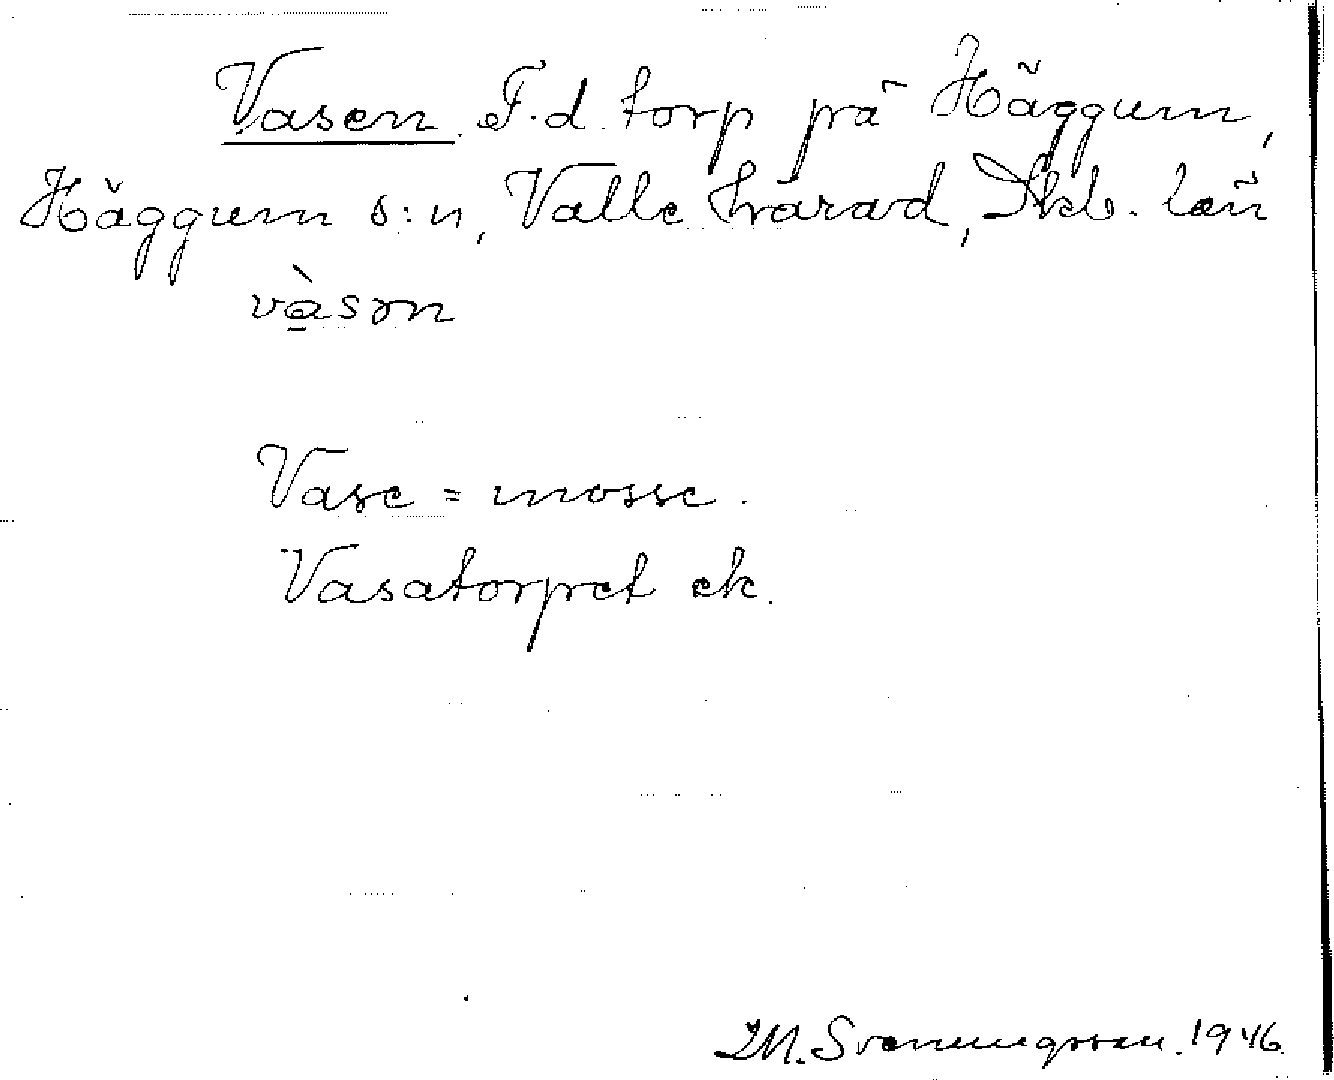 Vasen. F.d. torp på Häggum,
Häggum s:n, Valle härad, Skb. län
vàsən
Vase = mosse.
Vasatorpet ek.
M. Svenningsson. 1946.